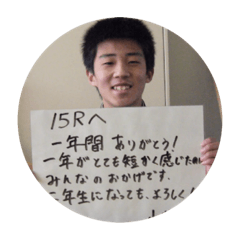 15Rへ
一年間 ありがとう!
一年がとても短かく感じたのは
みんなのおかげです。
二年生になっても、よろしく!